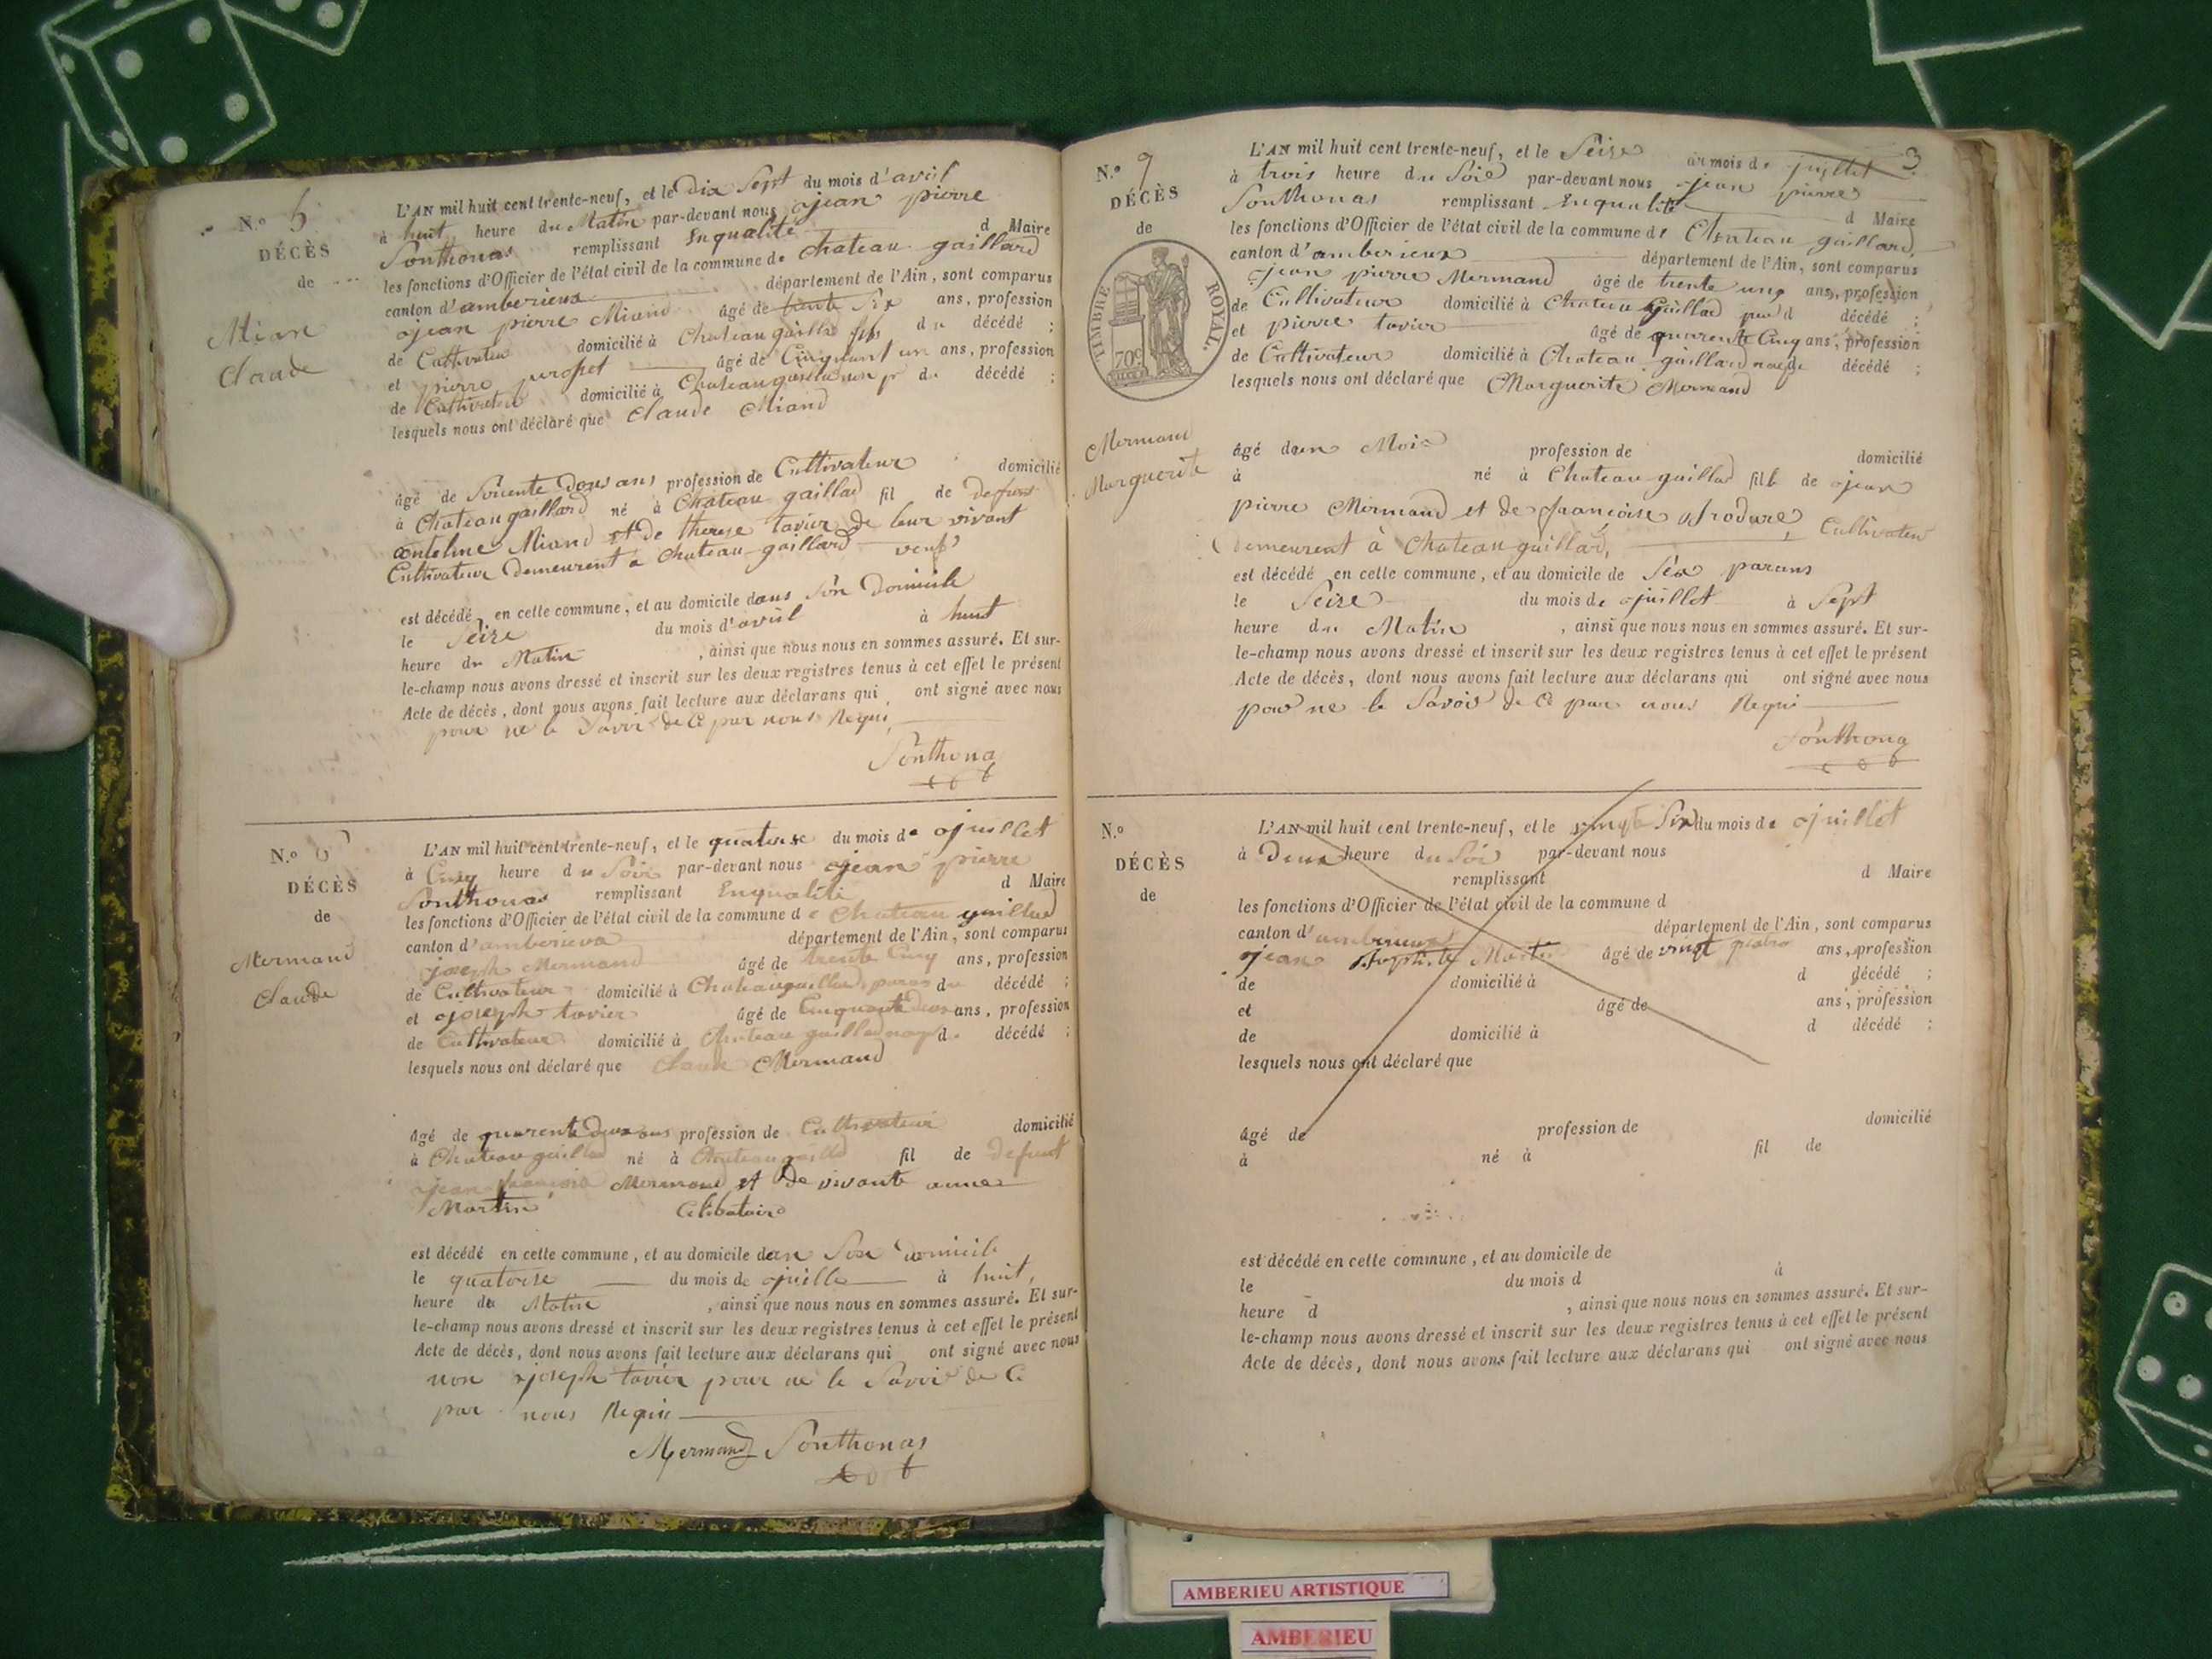 N.o 5
DÉCÈS
de
Mian
Claude
L'AN mil huit cent trente-neuf, et le dix Sept du mois d'avril
à huit heure du Matin par-devant nous jean pierre
Sonthonas remplissant Enqualité d Maire
les fonctions d'Officier de l'état civil de la commune de Chateau gaillard
canton d'amberieux département de l'Ain, sont comparus
jean pierre Miand âgé de trente Six ans, profession
de Cultivateur domicilié à Chateaugaillard fils du décédé ;
et pierre âgé de Cinquant un ans, profession
de Cultivateur domicilié à Chateaugaillard du décédé ;
lesquels nous ont déclaré que Claude Miand
âgé de ans profession de Cultivateur domicilié
à Chateaugaillard né à Chateau gaillad fil de
antelme Miand et de therese tavier de leur vivant
Cultivateur demeurent a chateau-gaillard veuf
est décédé en cette commune, et au domicile dans Son Domicile
le Seize du mois d'avril à huit
heure du Matin , ainsi que nous nous en sommes assuré. Et sur-
le-champ nous avons dressé et inscrit sur les deux registres tenus à cet effet le présent
Acte de décès, dont nous avons fait lecture aux déclarans qui ont signé avec nous
pour ne le Savoir de Ce par nous Requi
Sonthona
N.o 6
DÉCÈS
de
Mermand
Claude
L'AN mil huit cent trente-neuf, et le quatorse du mois de juillet
à Cinq heure du Soir par-devant nous jean pierre
Sonthonas remplissant Enqualité d Maire
les fonctions d'Officier de l'état civil de la commune de Chateau gaillard
canton d'amberieux département de l'Ain, sont comparus
joseph Mermand âgé de trente Cinq ans, profession
de Cultivateur domicilié à Chateaugaillad du décédé ;
et joseph tavier âgé de Cinquante deux ans, profession
de Cultivateur domicilié à Chateau gaillad d. décédé ;
lesquels nous ont déclaré que Claude Mermand
âgé de quarente deux ans profession de Cultivateur domicilié
à Chateau gaillad né à Chateau gaillad fil de defunt
jean françois Mermand et De vivante anne
Martin Célibataire
est décédé en cette commune, et au domicile dans Son Domicile
le quatorse du mois de juille à huit,
heure du Matin , ainsi que nous nous en sommes assuré. Et sur-
le-champ nous avons dressé et inscrit sur les deux registres tenus à cet effet le présent
Acte de décès, dont nous avons fait lecture aux déclarans qui ont signé avec nous
non joseph tavier pour ne le Savoir de Ce
par nous Requi
Mermand Sonthonas
3
N.o 7
DÉCÈS
de
TIMBRE ROYAL.
70c
Mermand
Marguerite
L'AN mil huit cent trente-neuf, et le Seize du mois de juillet
à trois heure du Soir par-devant nous jean pierre
Sonthonas remplissant Enqualité d Maire
les fonctions d'Officier de l'état civil de la commune de Chateau gaillard,
canton d'amberieux département de l'Ain, sont comparus
jean pierre Mermand âgé de trente ung ans, profession
de Cultivateur domicilié à Chateau gaillad d décédé ;
et pierre tavier âgé de quarente Cinq ans, profession
de Cultivateur domicilié à Chateau gaillard décédé ;
lesquels nous ont déclaré que Marguerite Mermand
âgé dun Mois profession de domicilié
à né à Chateau-gaillad fille de jean
pierre Mermand et de françoise Cultivateur
Demeurent à Chateau gaillad,
est décédé en cette commune, et au domicile de Sès parans
le Seize du mois de juillet à Sept
heure du Matin , ainsi que nous nous en sommes assuré. Et sur-
le-champ nous avons dressé et inscrit sur les deux registres tenus à cet effet le présent
Acte de décès, dont nous avons fait lecture aux déclarans qui ont signé avec nous
pour ne le Savoir de Ce par nous Requi
Sonthona
N.o
DÉCÈS
de
L'AN mil huit cent trente-neuf, et le vingt Six du mois de juillet
à Deux heure du Soir par-devant nous
remplissant d Maire
les fonctions d'Officier de l'état civil de la commune d
canton d'amberieux département de l'Ain, sont comparus
jean Baptiste Martin âgé de vingt quatre ans, profession
de domicilié à d décédé ;
et âgé de ans, profession
de domicilié à d décédé ;
lesquels nous ont déclaré que
âgé de profession de domicilié
à né à fil de
est décédé en cette commune, et au domicile de
le du mois d à
heure d , ainsi que nous nous en sommes assuré. Et sur-
le-champ nous avons dressé et inscrit sur les deux registres tenus à cet effet le présent
Acte de décès, dont nous avons fait lecture aux déclarans qui ont signé avec nous
AMBERIEU ARTISTIQUE
AMBERIEU